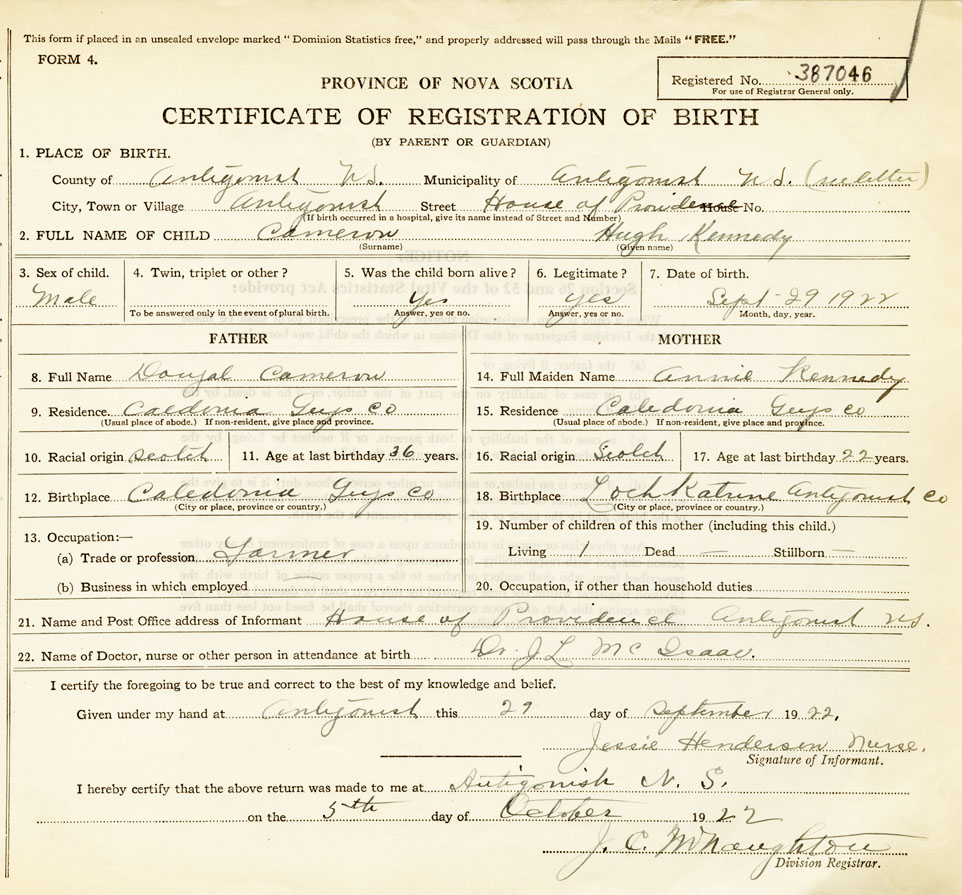 This form if placed in an unsealed envelope marked "Dominion Statistics free," and properly addressed will pass through the Mails "FREE."
FORM 4.
PROVINCE OF NOVA SCOTIA
Registered No. 387046
For use of Registrar General only.
CERTIFICATE OF REGISTRATION OF BIRTH
(BY PARENT OR GUARDIAN)
1. PLACE OF BIRTH.
County of Antigonish N.S. Municipality of Antigonish N.S. (see letter)
City, Town or Village Antigonish Street House of Providence House No.
(If birth occurred in a hospital, give its name instead of Street and Number)
2. FULL NAME OF CHILD Cameron Hugh Kennedy
(Surname) (Given name)
3. Sex of child. 4. Twin, triplet or other? 5. Was the child born alive? 6. Legitimate? 7. Date of birth.
Male Yes Yes Sept-29 1922
To be answered only in the event of plural birth. Answer, yes or no. Answer, yes or no. Month, day, year.
FATHER MOTHER
8. Full Name Dougal Cameron 14. Full Maiden Name Annie Kennedy
9. Residence Caledonia Guys Co 15. Residence Caledonia Guys co
(Usual place of abode.) If non-resident, give place and province. (Usual place of abode.) If non-resident, give place and province.
10. Racial origin Scotch 11. Age at last birthday 36 years. 16. Racial origin Scotch 17. Age at last birthday 22 years.
12. Birthplace Caledonia Guys co 18. Birthplace Loch Katrine Antigonish Co
(City or place, province or country.) (City or place, province or country.)
13. Occupation:— 19. Number of children of this mother (including this child.)
(a) Trade or profession Farmer Living 1 Dead — Stillborn —
(b) Business in which employed 20. Occupation, if other than household duties
21. Name and Post Office address of Informant House of Providence Antigonish N.S.
22. Name of Doctor, nurse or other person in attendance at birth Dr. J L McIsaac
I certify the foregoing to be true and correct to the best of my knowledge and belief.
Given under my hand at Antigonish this 29 day of September 1922.
Jessie Henderson Nurse.
Signature of Informant.
I hereby certify that the above return was made to me at Antigonish N. S.
on the 5th day of October 1922
J. C. McNaughton
Division Registrar.